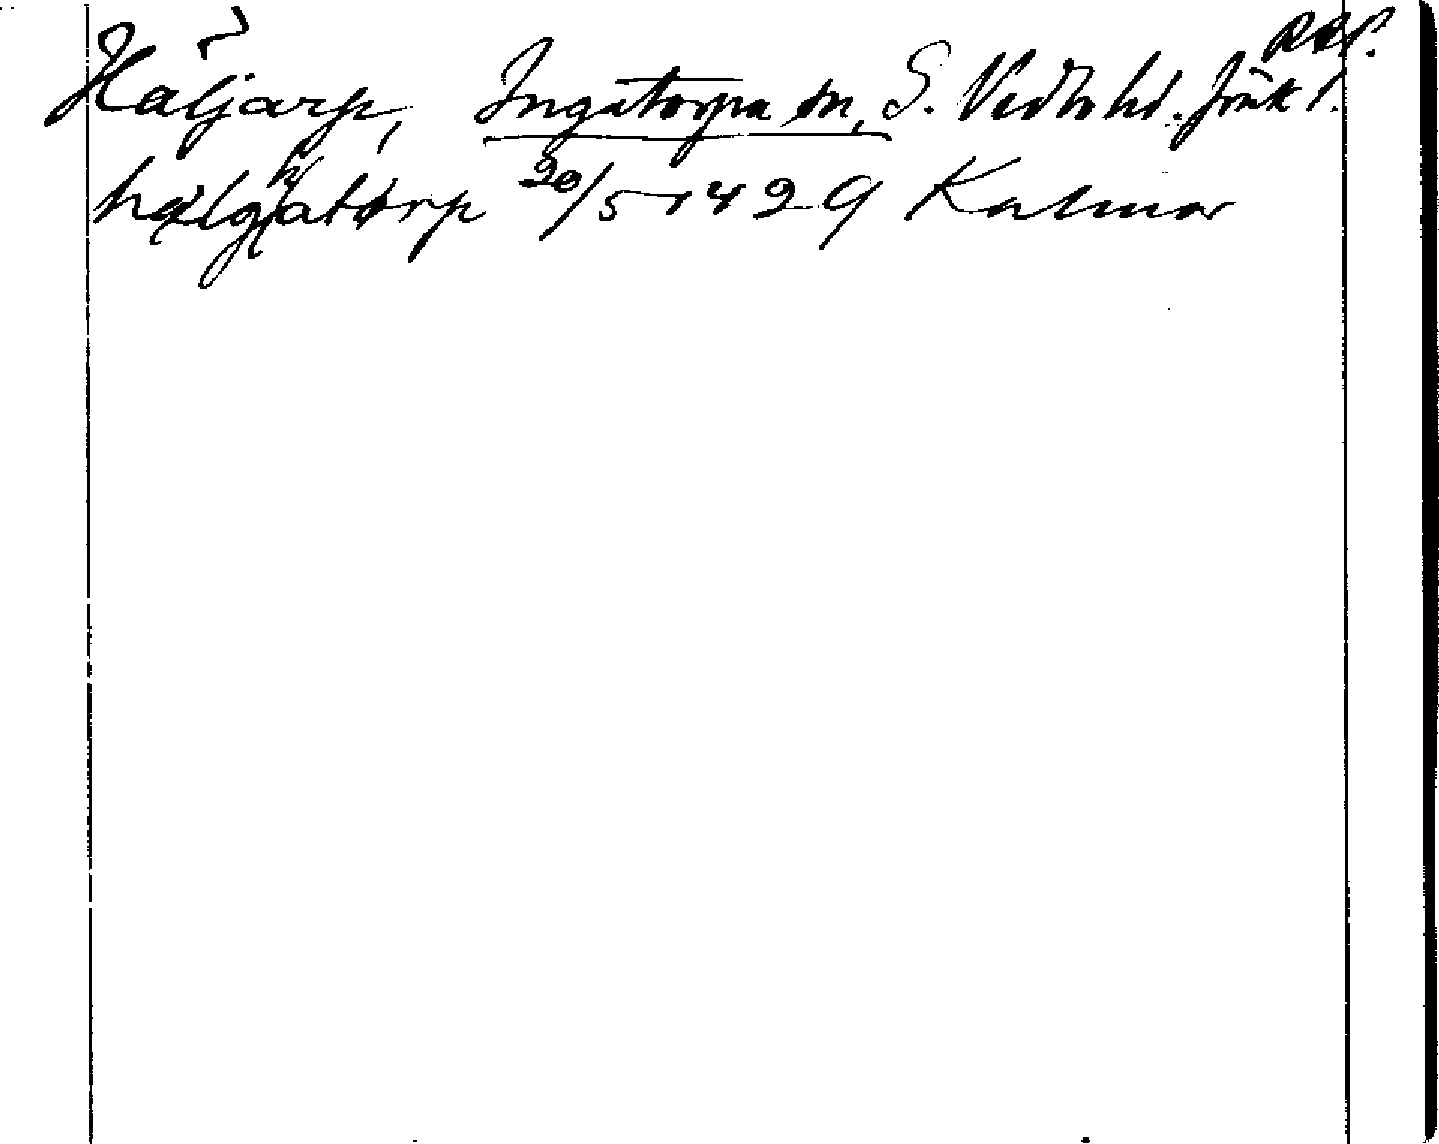 RAP.
Häljarp, Ingatorpa sn, S. Vedbo hd. Jönk l.
hælghatorp 20/5 1429 Kalmar